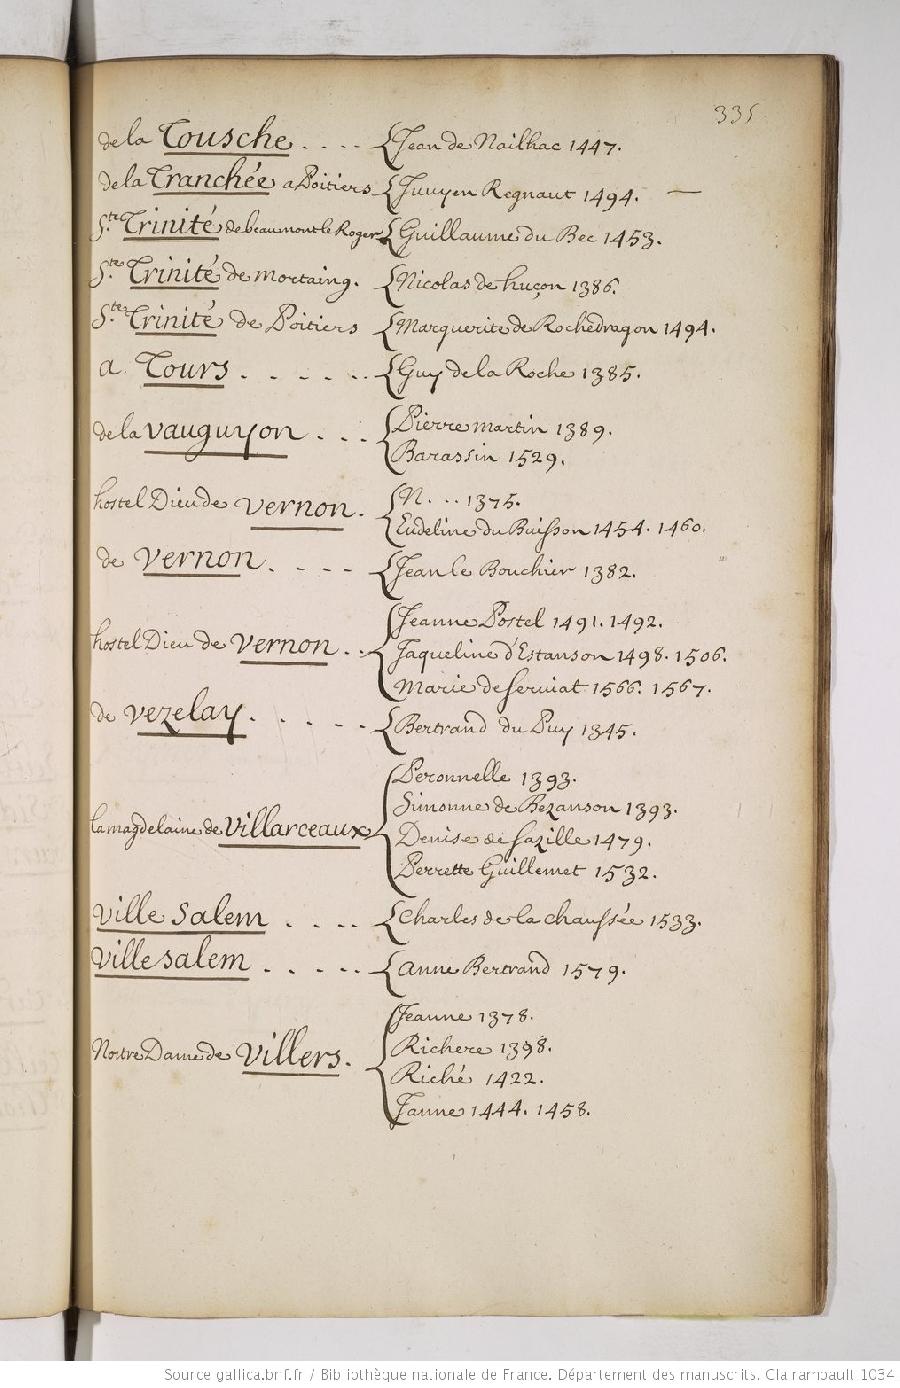 335
de la Tousche .... {Jean de Nailhac 1447.
de la Tranchée a Poitiers {Juuyen Regnaut 1494. —
S.te Trinité de beaumont le Roger {Guillaume du Bec 1453.
S.te Trinité de mortaing. {Nicolas de huçon 1386.
S.te Trinité de Poitiers {Marguerite de Rochedragon 1494.
a Tours ...... {Guy de la Roche 1385.
de la vauguyon ... {Pierre martin 1389.
Barassin 1529.
hostel Dieu de vernon. {N. ... 1375.
Eudeline du Buisson 1454. 1460.
de vernon .... {Jean le Bouchier 1382.
hostel Dieu de vernon .. {Jeanne Postel 1491. 1492.
Jaqueline d'Estanson 1498. 1506.
Marie de 1566. 1567.
de vezelay ..... {Bertrand du Puy 1345.
la magdelaine de villarceaux {Peronnelle 1393.
Simonne de Bezanson 1393.
Denise de Sazille 1479.
Perrette Guillemet 1532.
ville salem .... {Charles de la chaussée 1533.
ville salem ..... {anne Bertrand 1579.
Nostre Dame de villers. {Jeanne 1378.
Richere 1398.
Riché 1422.
Janne 1444. 1458.
Source gallica.bnf.fr / Bibliothèque nationale de France. Département des manuscrits. Clairambault 1034